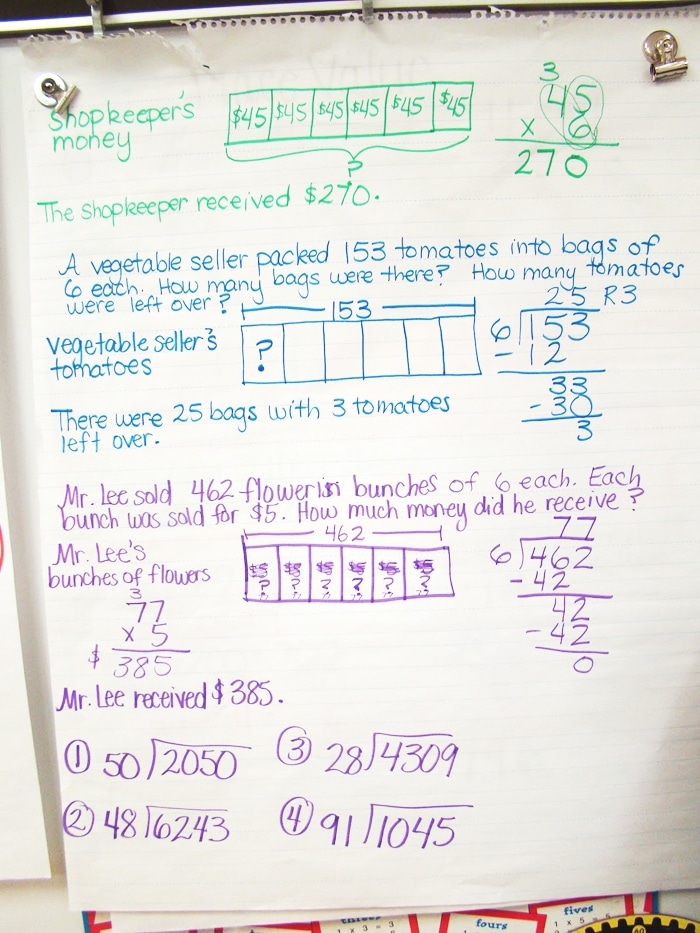 Shopkeeper's
money
$45 $45 $45 $45 $45 $45
?
3
45
x 6
270
The shopkeeper received $270.
A vegetable seller packed 153 tomatoes into bags of
6 each. How many bags were there? How many tomatoes
were left over?
153
vegetable seller's
tomatoes
?
25 R3
6)153
-12
33
-30
3
There were 25 bags with 3 tomatoes
left over.
Mr. Lee sold 462 flower in bunches of 6 each. Each
bunch was sold for $5. How much money did he receive?
462
Mr. Lee's
bunches of flowers
$5 $5 $5 $5 $5 $5
? ? ? ? ? ?
77
6)462
-42
42
-42
0
3
77
x 5
$ 385
Mr. Lee received $385.
① 50)2050
③ 28)4309
② 48)6243
④ 91)1045
fours
fives
1 x 3 = 3